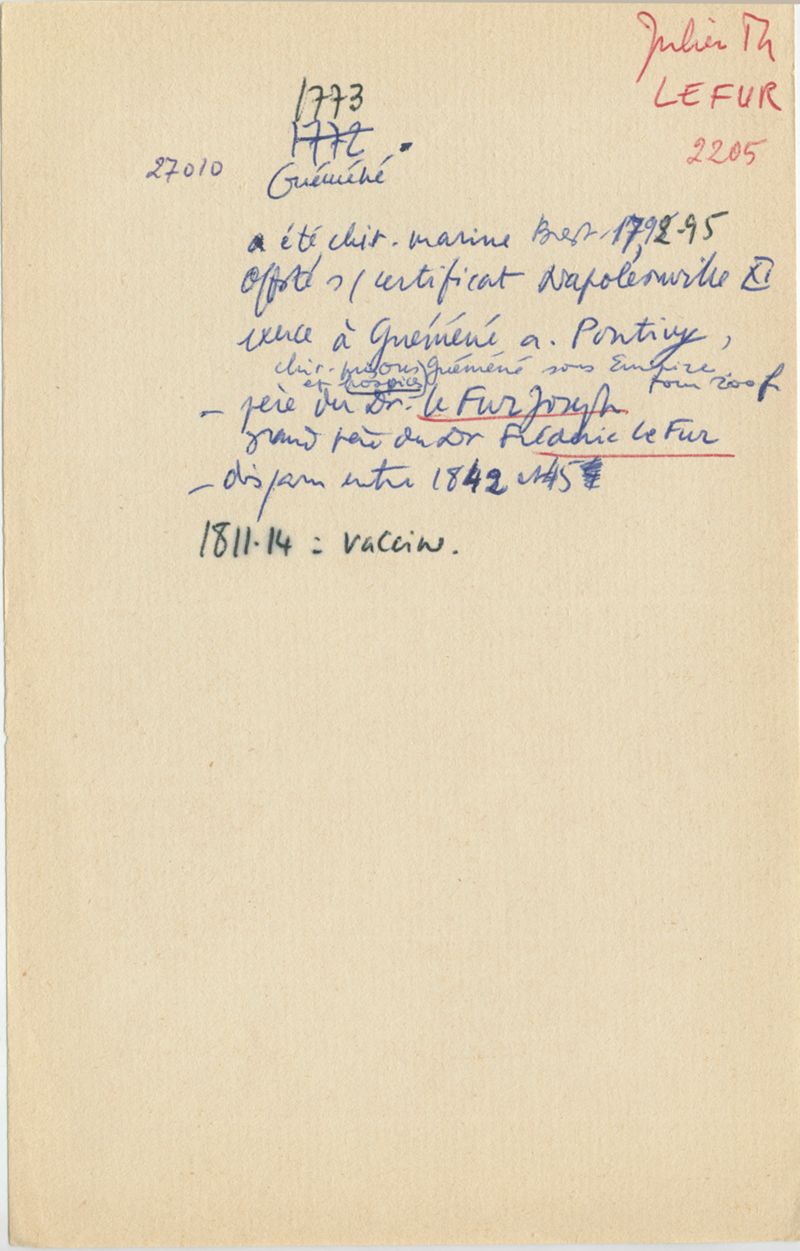 Julien Th
LE FUR
2205
1773
1772
27010
Guéméné
a été chir. marine Brest 1792-95
Off. s/ certificat Napoléonville XI
exerce à Guéméné a. Pontivy,
chir. prisons Guéméné sous Empire
et hospice pour 200 f
- père du Dr. Le Fur Joseph
grand père du Dr Frédéric Le Fur
- disparu entre 1842 et 45
1811-14 = vaccine.